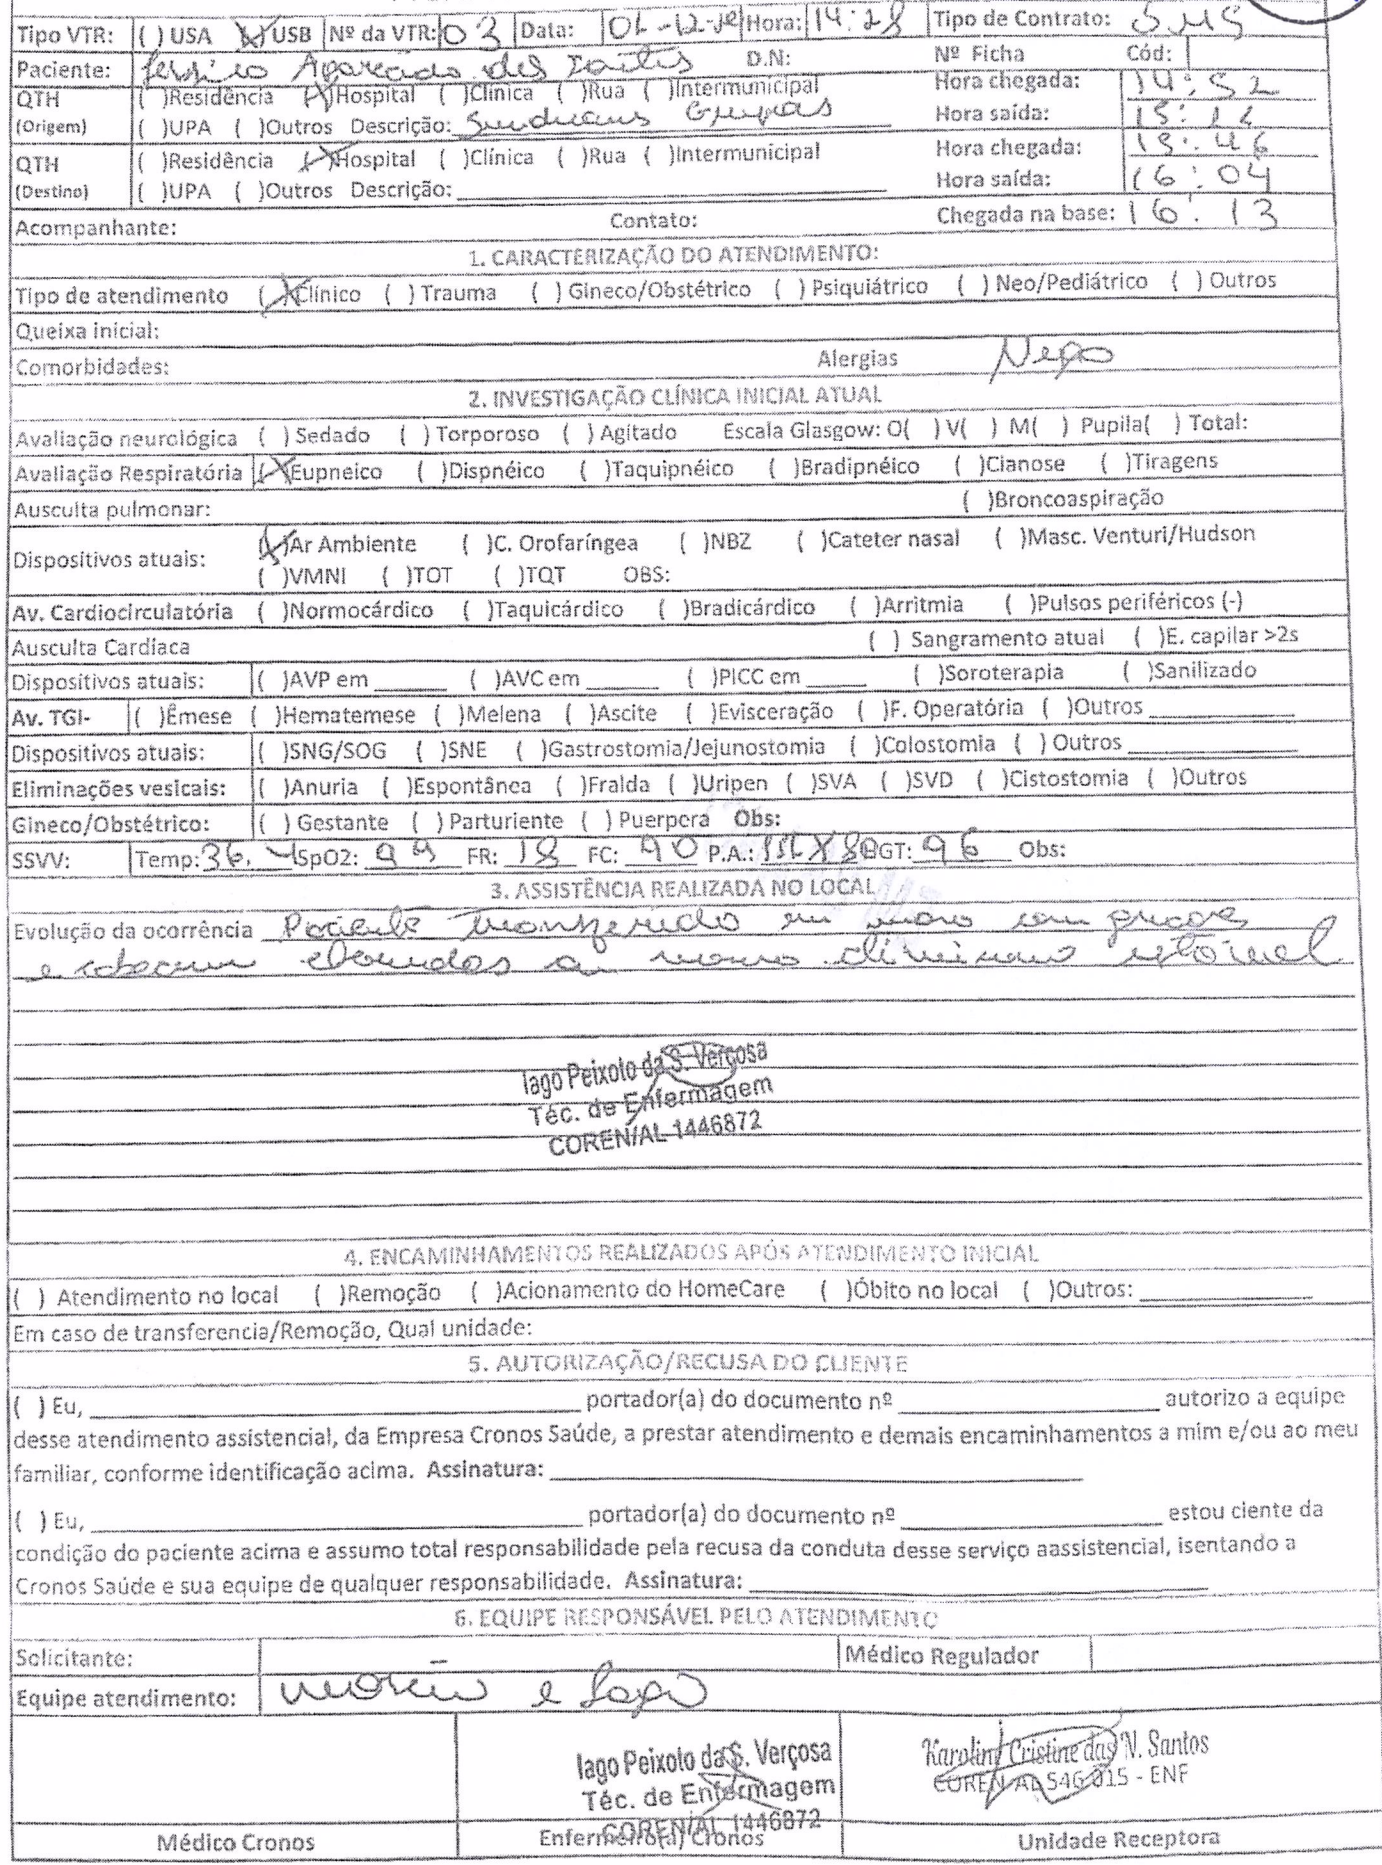 Tipo VTR: ( ) USA (X) USB Nº da VTR: 03 Data: Hora: 14:28 Tipo de Contrato: SMS
Paciente: D.N: Nº Ficha Cód:
QTH ( )Residência (X)Hospital ( )Clínica ( )Rua ( )Intermunicipal Hora chegada: 14:52
(Origem) ( )UPA ( )Outros Descrição: Hora saída:
QTH ( )Residência (X)Hospital ( )Clínica ( )Rua ( )Intermunicipal Hora chegada: 15:46
(Destino) ( )UPA ( )Outros Descrição: Hora saída: 16:04
Acompanhante: Contato: Chegada na base: 16:13
1. CARACTERIZAÇÃO DO ATENDIMENTO:
Tipo de atendimento (X)Clínico ( ) Trauma ( ) Gineco/Obstétrico ( ) Psiquiátrico ( ) Neo/Pediátrico ( ) Outros
Queixa inicial:
Comorbidades: Alergias
2. INVESTIGAÇÃO CLÍNICA INICIAL ATUAL
Avaliação neurológica ( ) Sedado ( ) Torporoso ( ) Agitado Escala Glasgow: O( ) V( ) M( ) Pupila( ) Total:
Avaliação Respiratória (X)Eupneico ( )Dispnéico ( )Taquipnéico ( )Bradipnéico ( )Cianose ( )Tiragens
Ausculta pulmonar: ( )Broncoaspiração
Dispositivos atuais: (X)Ar Ambiente ( )C. Orofaríngea ( )NBZ ( )Cateter nasal ( )Masc. Venturi/Hudson
( )VMNI ( )TOT ( )TQT OBS:
Av. Cardiocirculatória ( )Normocárdico ( )Taquicárdico ( )Bradicárdico ( )Arritmia ( )Pulsos periféricos (-)
Ausculta Cardíaca ( ) Sangramento atual ( )E. capilar >2s
Dispositivos atuais: ( )AVP em ______ ( )AVC em ______ ( )PICC em ______ ( )Soroterapia ( )Sanilizado
Av. TGI- ( )Êmese ( )Hematemese ( )Melena ( )Ascite ( )Evisceração ( )F. Operatória ( )Outros ____________
Dispositivos atuais: ( )SNG/SOG ( )SNE ( )Gastrostomia/Jejunostomia ( )Colostomia ( ) Outros ____________
Eliminações vesicais: ( )Anuria ( )Espontânea ( )Fralda ( )Uripen ( )SVA ( )SVD ( )Cistostomia ( )Outros
Gineco/Obstétrico: ( ) Gestante ( ) Parturiente ( ) Puerpera Obs:
SSVV: Temp: 36, SpO2: FR: 18 FC: 90 P.A.: GT: 96 Obs:
3. ASSISTÊNCIA REALIZADA NO LOCAL
Evolução da ocorrência Paciente transferido em com
e a
Iago Peixoto da S. Verçosa
Téc. de Enfermagem
COREN/AL 1446872
4. ENCAMINHAMENTOS REALIZADOS APÓS ATENDIMENTO INICIAL
( ) Atendimento no local ( )Remoção ( )Acionamento do HomeCare ( )Óbito no local ( )Outros: ____________
Em caso de transferencia/Remoção, Qual unidade:
5. AUTORIZAÇÃO/RECUSA DO CLIENTE
( ) Eu, ____________ portador(a) do documento nº ____________ autorizo a equipe
desse atendimento assistencial, da Empresa Cronos Saúde, a prestar atendimento e demais encaminhamentos a mim e/ou ao meu
familiar, conforme identificação acima. Assinatura: ____________
( ) Eu, ____________ portador(a) do documento nº ____________ estou ciente da
condição do paciente acima e assumo total responsabilidade pela recusa da conduta desse serviço aassistencial, isentando a
Cronos Saúde e sua equipe de qualquer responsabilidade. Assinatura: ____________
6. EQUIPE RESPONSÁVEL PELO ATENDIMENTO
Solicitante: Médico Regulador
Equipe atendimento: e Iago
Iago Peixoto da S. Verçosa
Téc. de Enfermagem
COREN/AL 1446872
Karoliny Cristine das N. Santos
COREN AL 546.015 - ENF
Médico Cronos Enfermeiro(a) Cronos Unidade Receptora